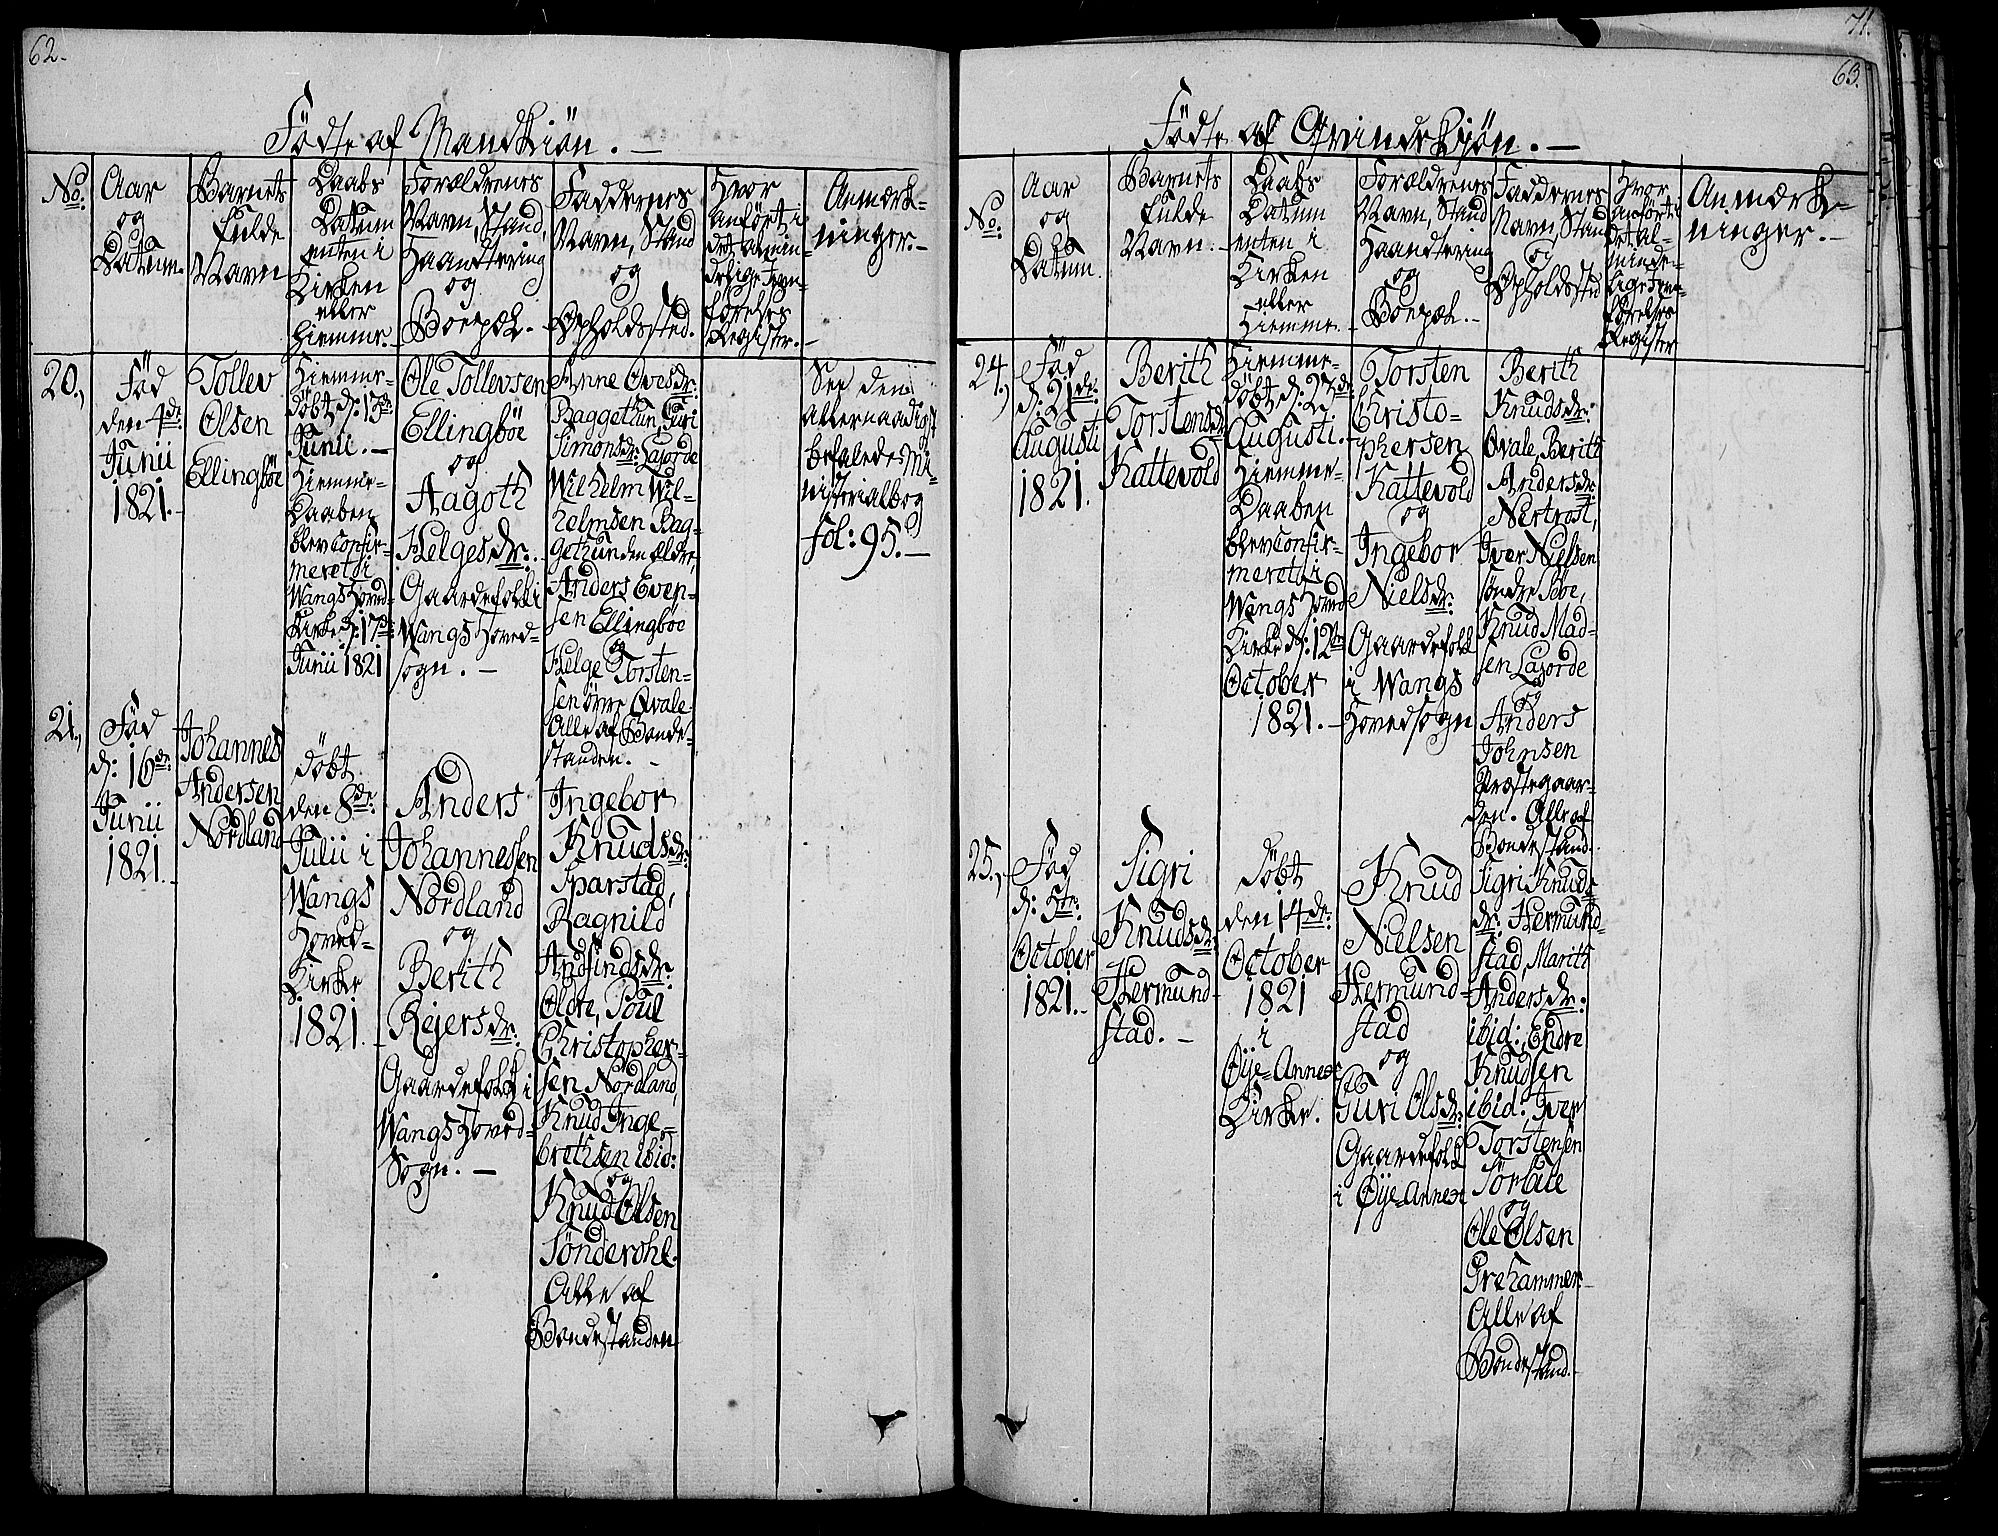 62.
Födte af Mandkiön. —
No:
Aar
og
Datum.
Barnets
fulde
Navn
Daabs
Datum
enten i
Kirken
eller
hiemme.
Forældrenes
Navn, Stand,
Haandtering
og
Boepæl.
Faddernes
Navn, Stand
og
Opholdssted.
Hvor
anfört i
det almin-
delige Jevn-
förelses
Register. —
Anmærk-
ninger. —
20.,
Föd
den 4de
Junii
1821. -
Tollev
Olsen
Ellingböe
Hiemme-
döbt d: 13de
Junii. —
Hiemme-
Daaben
blev confir-
meret i
Wangs Hoved
Kirke d: 17de
Junii 1821
Ole Tollevsen
Ellingböe
og
Aagoth
Helgesdr:.
Gaardefolk i
Wangs Hoved-
sogn. —
Anne Ovesdr:
Baggethun, Guri
Simonsdr: Lajorde
Wilhelm Wil-
helmsen Bag-
gethun den ældre,
Anders Even-
sen Ellingböe
og
Helge Torsten-
sen övre Qvale
Alle af Bonde-
standen. -
See den
allernaadigst
befalede Mi-
nisterialbog
fol: 95. —
21.,
Föd
d: 16de
Junii
1821. -
Johannes
Andersen
Nordland
Döbt
den 8de
Julii i
Wangs
Hoved-
Kirke
1821. -
Anders
Johannessen
Nordland
og
Berith
Rejersdr:
Gaardefolk i
Wangs Hoved-
Sogn. —
Ingebor
Knudsdr:
Sparstad,
Ragnild
Andfindsdr:
Oldre, Poul
Christopher-
sen Nordland,
Knud Inge-
brethsen ibid:
og
Knud Olsen
Sönderohl.
Alle af
Bondestanden
71.
63.
Födte af Qvindekjön. —
No:
Aar
og
Datum.
Barnets
fulde
Navn. -
Daabs
Datum
enten i
Kirken
eller
hiemme. -
Forældrenes
Navn, Stand
Haandtering
og
Boepæl. -
Faddernes
Navn, Stand
og
Opholdsted
Hvor
anfört i
det al-
minde-
lige Jevn-
förelses
Register
Anmærk-
ninger. —
24.,
Föd
d: 21de
Augusti
1821.
Berith
Torstensdr:
Kattevold
Hiemme-
döbt d: 27de
Augusti. -
Hiemme-
Daaben
blev confir-
meret i
Wangs Hoved
Kirke d: 12te
October
1821. —
Torsten
Christo-
phersen
Kattevold
og
Ingebor
Nielsdr:
Gaardefolk
i Wangs
Hovedsogn
Berith
Knudsdr:
Qvale, Berith
Andersdr:
Nertrost,
Iver Nielsen
söndre Böe,
Knud Mad-
sen Lajorde
og
Anders
Johnsen
Præstegaar-
den. Alle af
Bondestand.
25.,
Föd
d: 5te
October
1821. -
Sigri
Knudsdr:
Hermund-
stad. -
Döbt
den 14de
October
1821
i
Øje-Annex
Kirke.
Knud
Nielsen
Hermund-
stad
og
Guri Olsdr:
Gaardefolk
i Øje-Annex
Sigri Knuds
dr: Hermund-
stad, Marith
Andersdr:
ibid:, Endre
Knudsen
ibid: Iver
Torstensen
Sörlie
og
Ole Olsen
Grehammer
Alle af
Bondestand. -